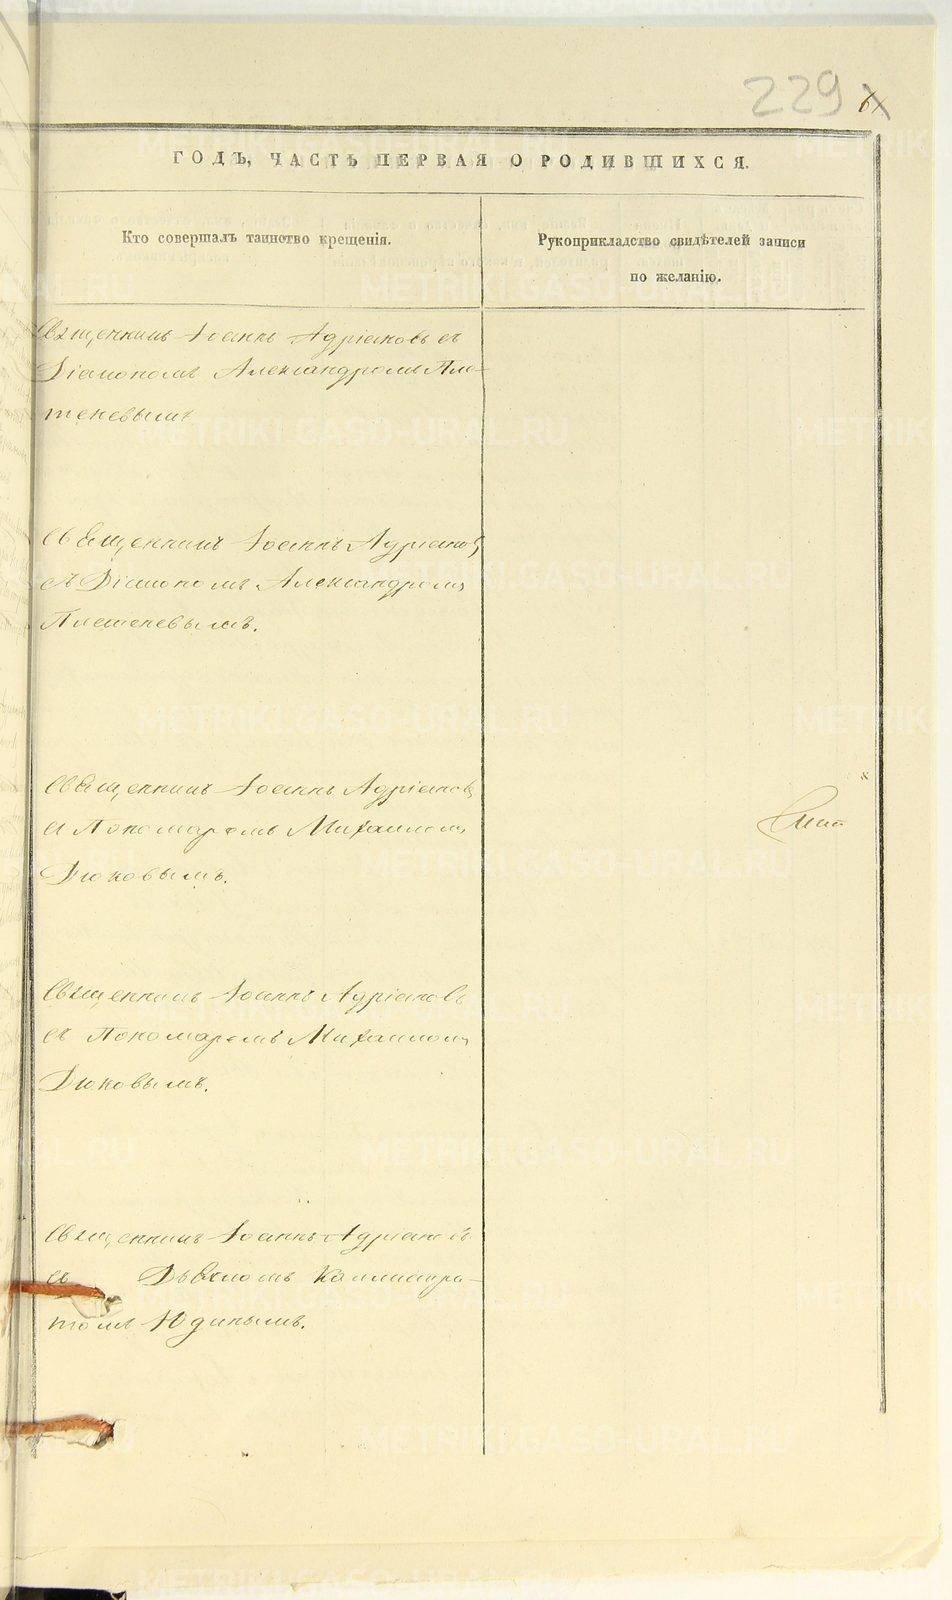 229
ГОДЪ, ЧАСТЬ ПЕРВАЯ О РОДИВШИХСЯ.
Кто совершалъ таинство крещенія.
Рукоприкладство свидѣтелей записи
по желанію.
Священникъ Іоаннъ Адріановъ съ
Діакономъ Александромъ Пле-
теневымъ
Священникъ Іоаннъ Адріановъ
съ Діакономъ Александромъ
Плетеневымъ.
Священникъ Іоаннъ Адріановъ
съ Пономаремъ Михаиломъ
Дюковымъ.
Священникъ Іоаннъ Адріановъ
съ Пономаремъ Михаиломъ
Дюковымъ.
Священникъ Іоаннъ Адріановъ
съ Дьячкомъ Каллистра-
томъ Юдинымъ.
METRIKI.GASO-URAL.RU